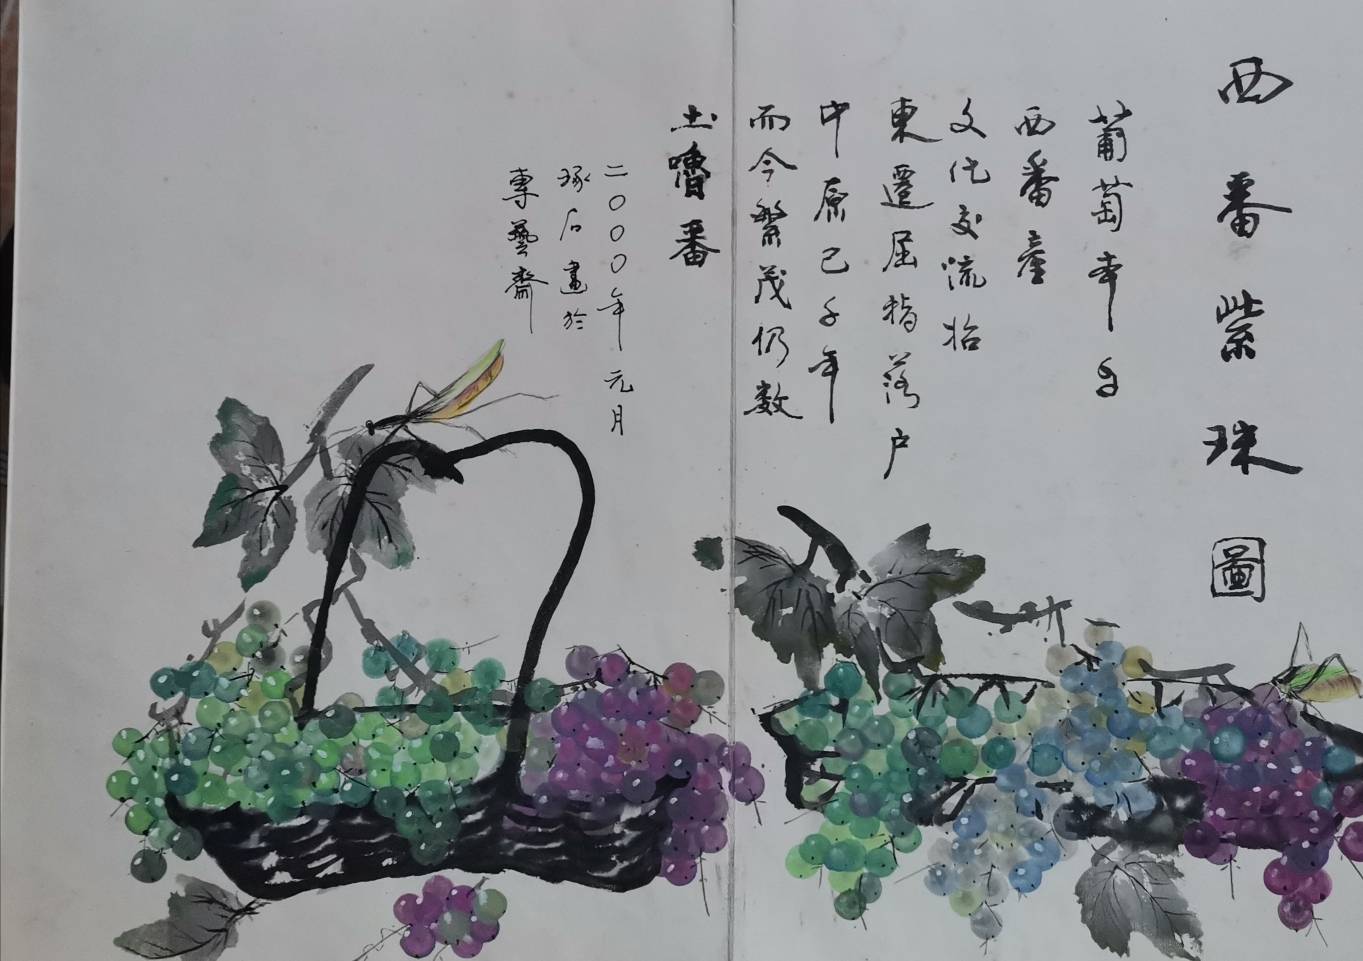 西番紫珠圖
葡萄本自
西番產
文化交流始
東遷屈指落户
中原已千年
而今繁茂仍数
土嚕番
二〇〇〇年元月
琢石畫於
專藝齋